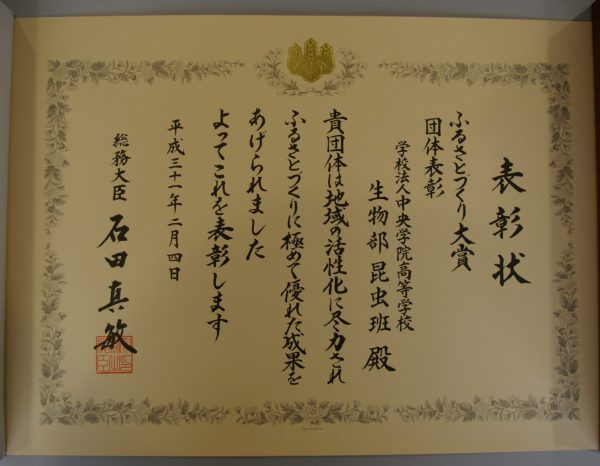 表彰状
ふるさとづくり大賞
団体表彰
学校法人中央学院高等学校
生物部昆虫班 殿
貴団体は地域の活性化に尽力され
ふるさとづくりに極めて優れた成果を
あげられました
よってこれを表彰します
平成三十一年二月四日
総務大臣 石田真敏